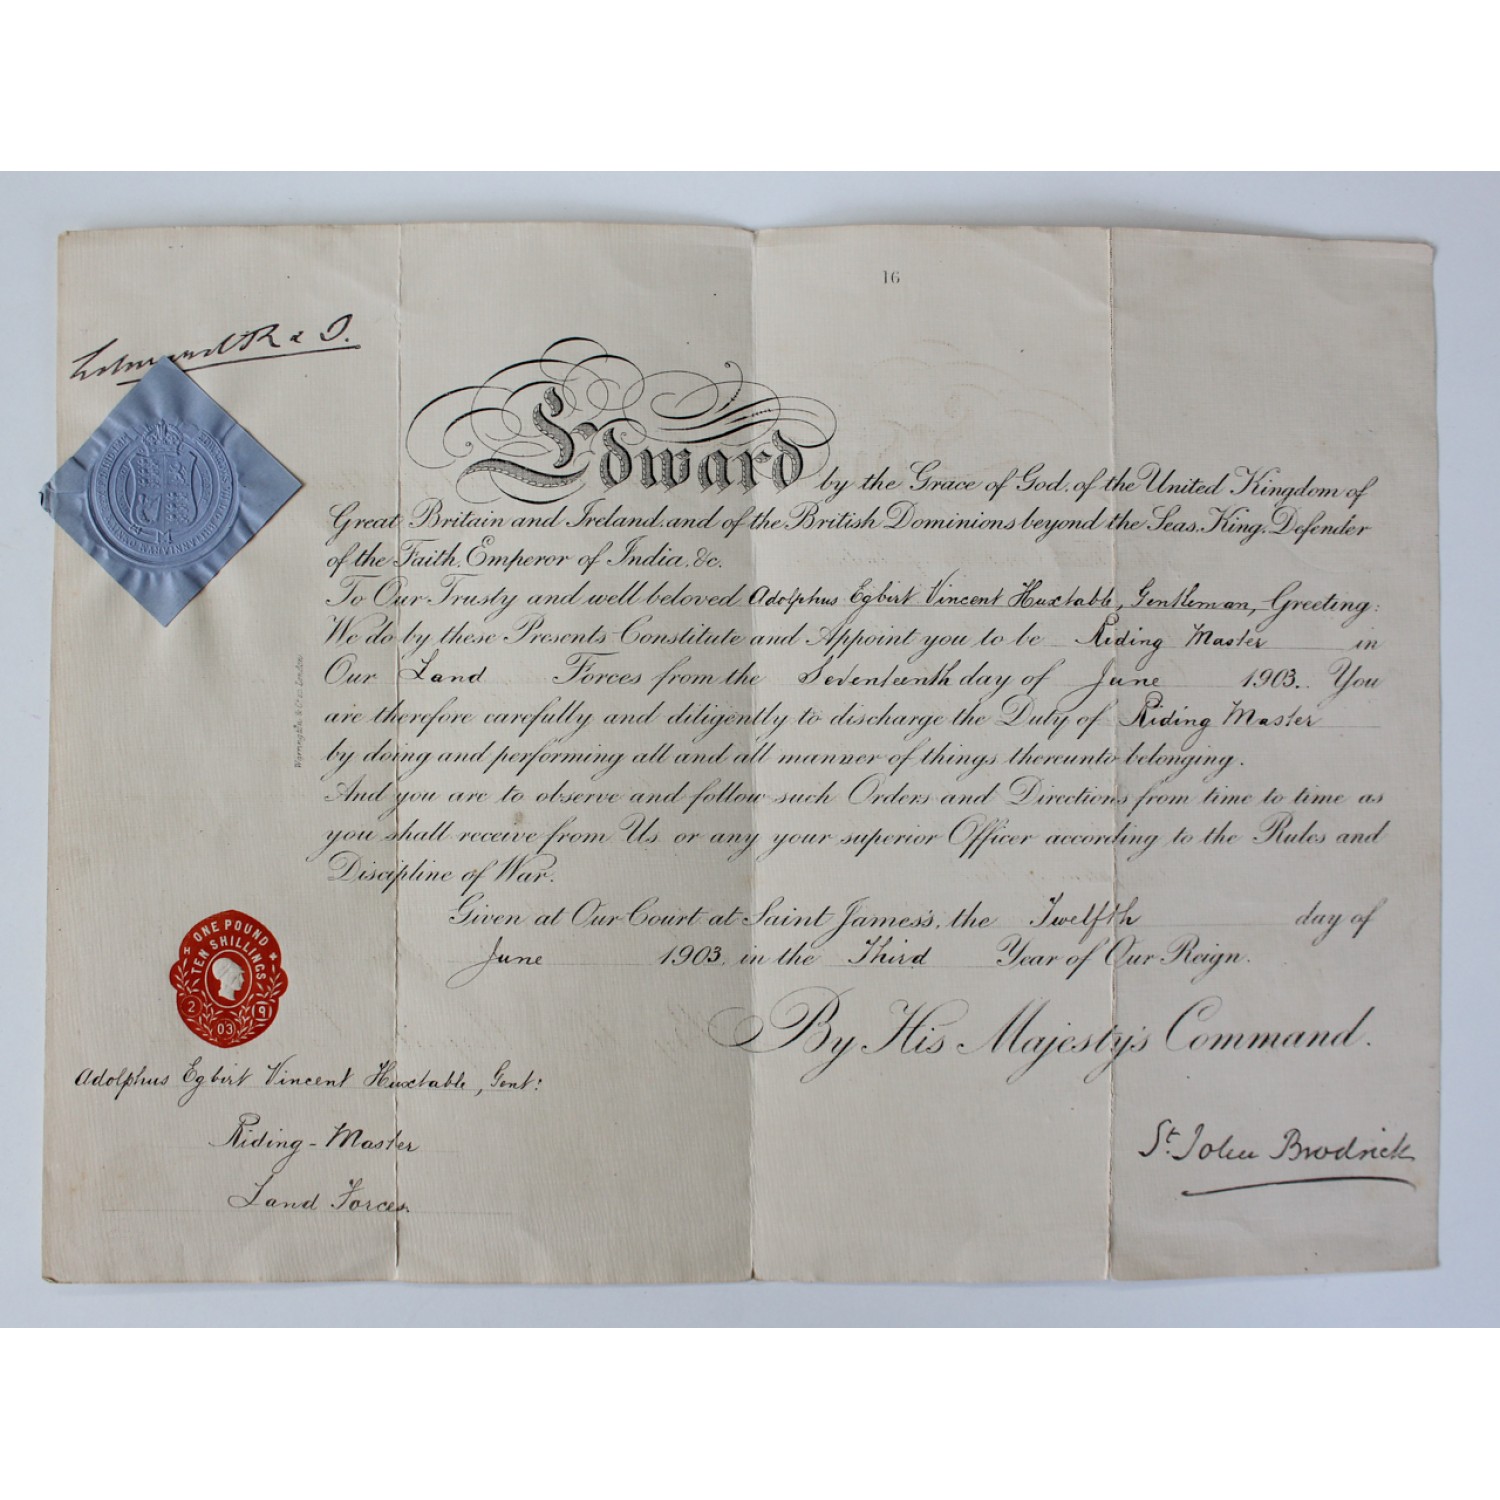 16
Edward R & I.
Edward by the Grace of God, of the United Kingdom of
Great Britain and Ireland, and of the British Dominions beyond the Seas, King, Defender
of the Faith, Emperor of India, &c.
To Our Trusty and well beloved Adolphus Egbert Vincent Huxtable, Gentleman, Greeting:
We do by these Presents Constitute and Appoint you to be Riding Master in
Our Land Forces from the Seventeenth day of June 1903. You
are therefore carefully and diligently to discharge the Duty of Riding Master
by doing and performing all and all manner of things thereunto belonging.
And you are to observe and follow such Orders and Directions from time to time as
you shall receive from Us or any your superior Officer according to the Rules and
Discipline of War.
Given at Our Court at Saint James's, the Twelfth day of
June 1903, in the Third Year of Our Reign.
By His Majesty's Command.
St. John Brodrick
ONE POUND
TEN SHILLINGS
2 03 19
Adolphus Egbert Vincent Huxtable, Gent:
Riding-Master
Land Forces.